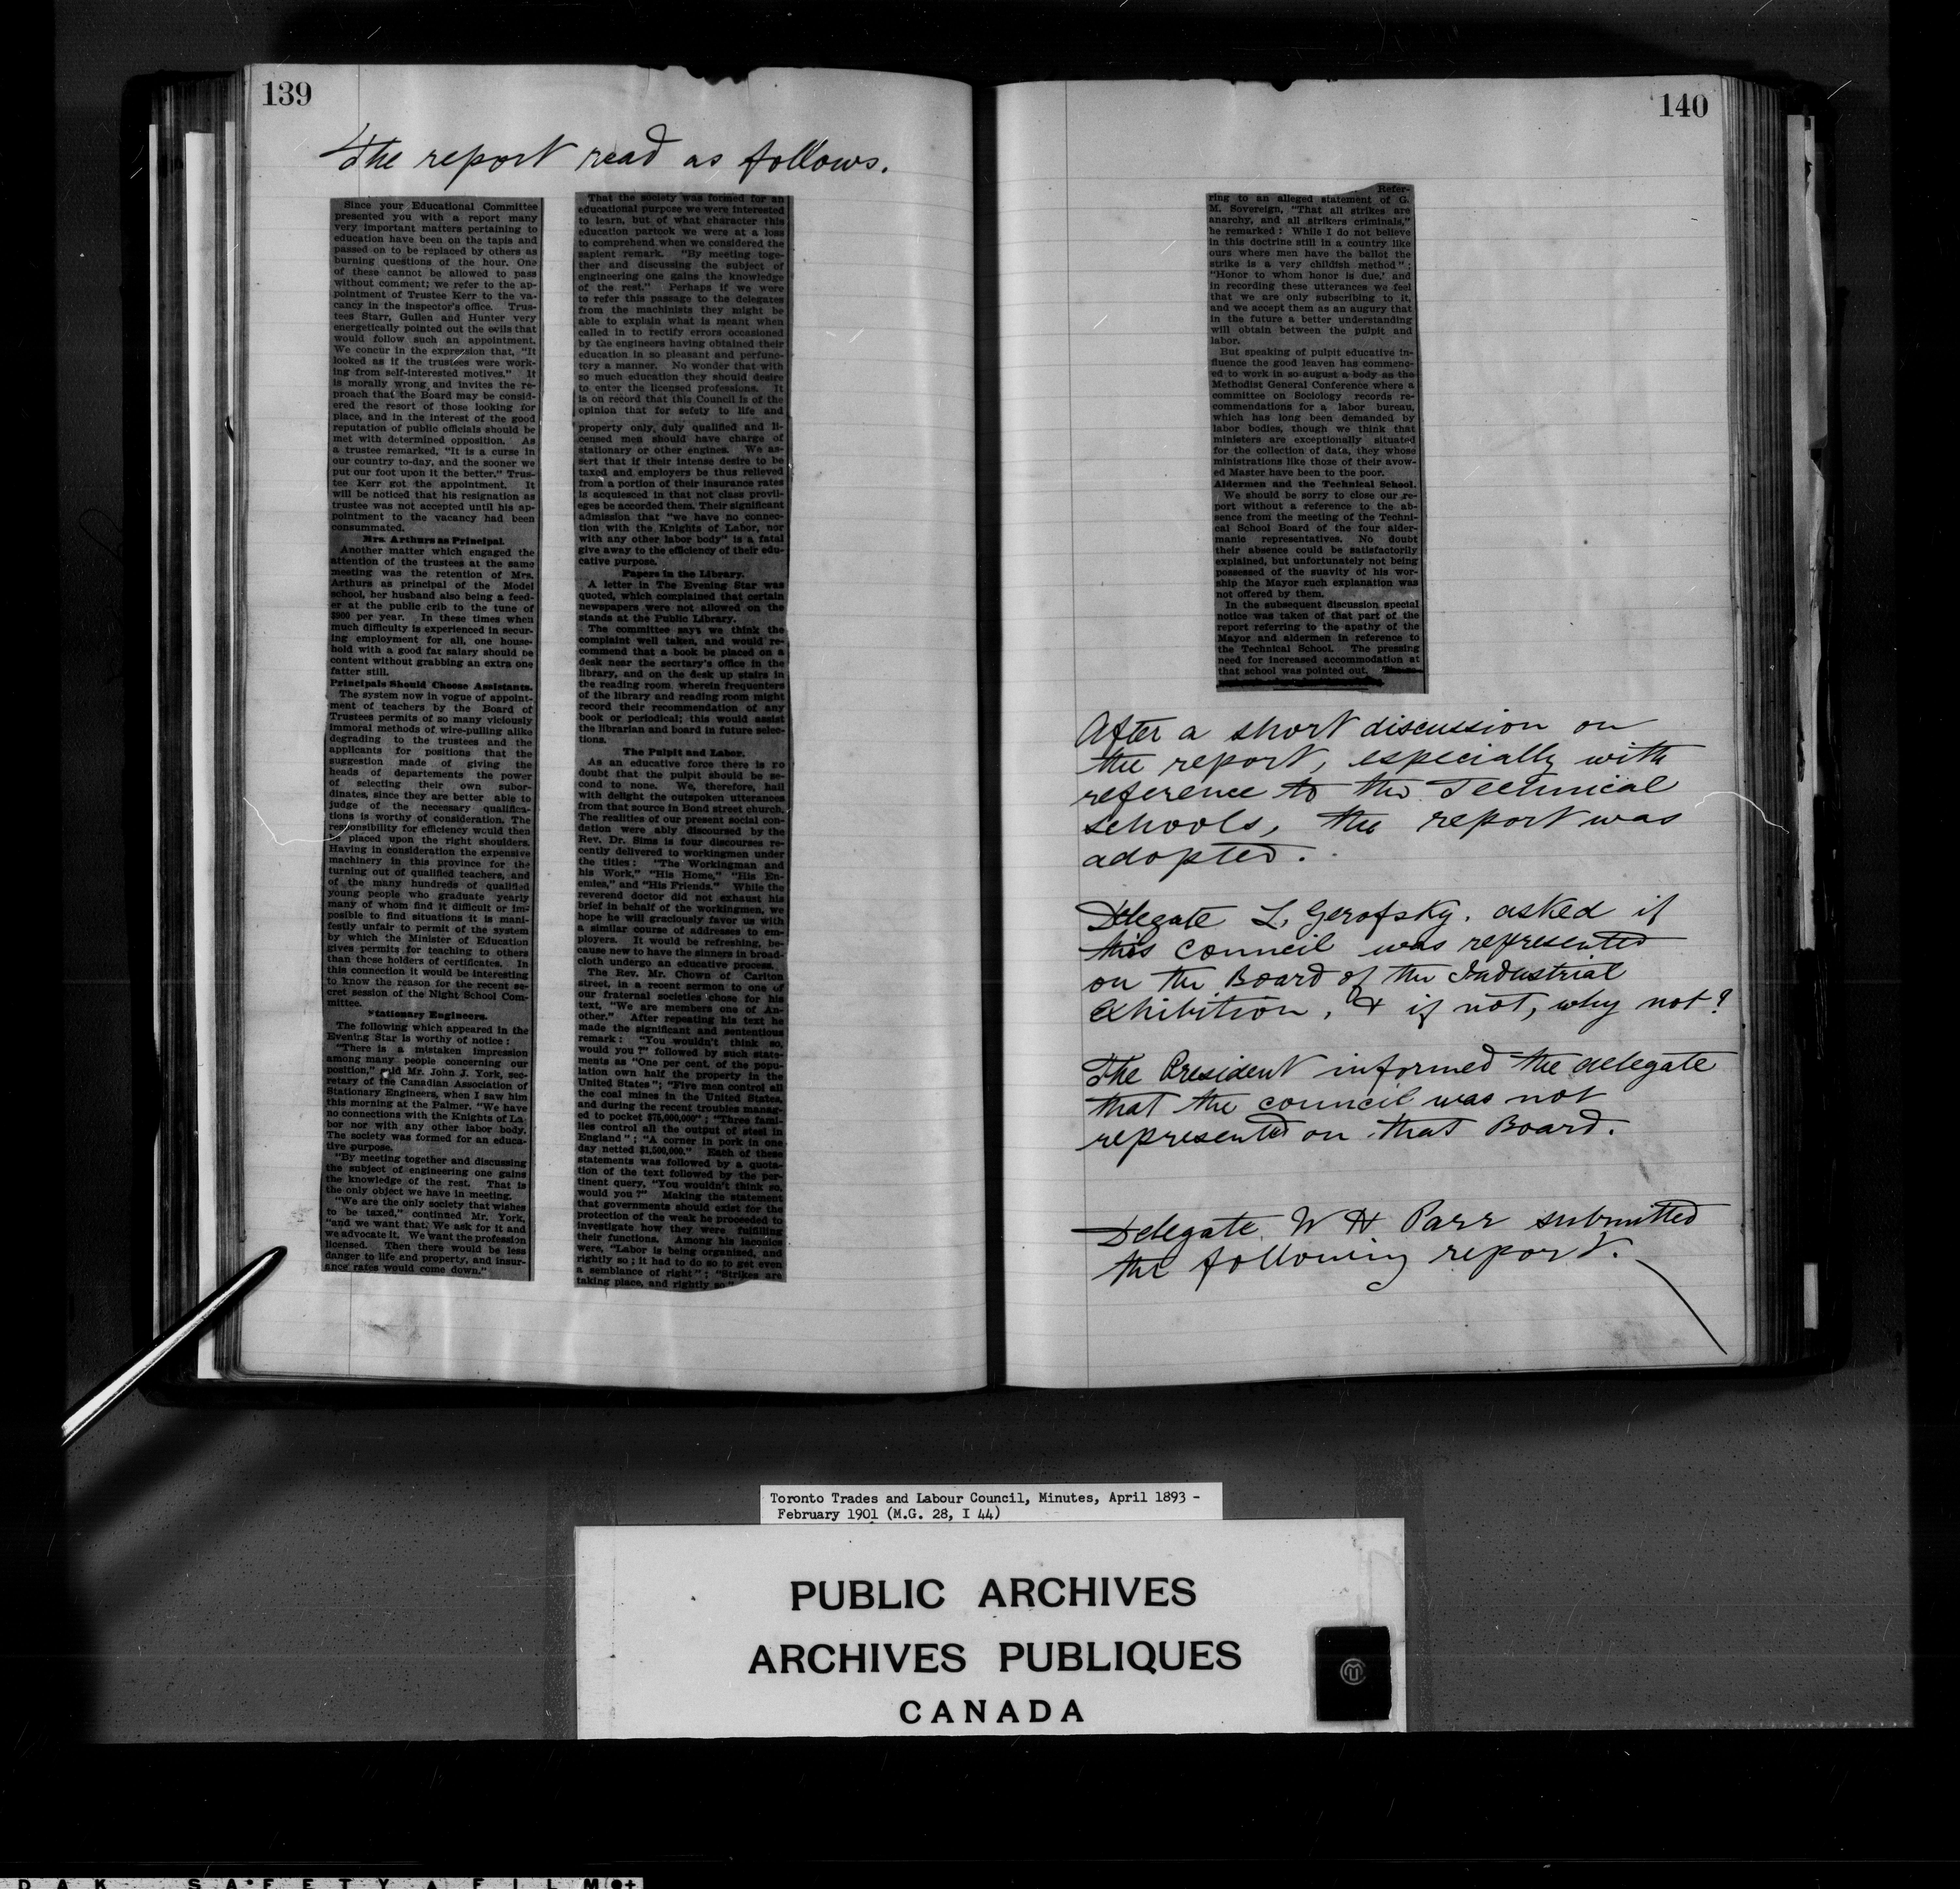 139
The report read as follows.
Since your Educational Committee
presented you with a report many
very important matters pertaining to
education have been on the tapis and
passed on to be replaced by others as
burning questions of the hour. One
of these cannot be allowed to pass
without comment; we refer to the ap-
pointment of Trustee Kerr to the va-
cancy in the inspector's office. Trus-
tees Starr, Gullen and Hunter very
energetically pointed out the evils that
would follow such an appointment.
We concur in the expression that, "It
looked as if the trustees were work-
ing from self-interested motives." It
is morally wrong and invites the re-
proach that the Board may be consid-
ered the resort of those looking for
place, and in the interest of the good
reputation of public officials should be
met with determined opposition. As
a trustee remarked, "It is a curse in
our country to-day, and the sooner we
put our foot upon it the better." Trus-
tee Kerr got the appointment. It
will be noticed that his resignation as
trustee was not accepted until his ap-
pointment to the vacancy had been
consummated.
Mrs. Arthurs as Principal.
Another matter which engaged the
attention of the trustees at the same
meeting was the retention of Mrs.
Arthurs as principal of the Model
school, her husband also being a feed-
er at the public crib to the tune of
$900 per year. In these times when
much difficulty is experienced in secur-
ing employment for all, one house-
hold with a good fat salary should be
content without grabbing an extra one
fatter still.
Principals Should Choose Assistants.
The system now in vogue of appoint-
ment of teachers by the Board of
Trustees permits of so many viciously
immoral methods of wire-pulling alike
degrading to the trustees and the
applicants for positions that the
suggestion made of giving the
heads of departements the power
of selecting their own subor-
dinates, since they are better able to
judge of the necessary qualifica-
tions is worthy of consideration. The
responsibility for efficiency would then
be placed upon the right shoulders.
Having in consideration the expensive
machinery in this province for the
turning out of qualified teachers, and
of the many hundreds of qualified
young people who graduate yearly
many of whom find it difficult or im-
posible to find situations it is mani-
festly unfair to permit of the system
by which the Minister of Education
gives permits for teaching to others
than those holders of certificates. In
this connection it would be interesting
to know the reason for the recent se-
cret session of the Night School Com-
mittee.
Stationary Engineers.
The following which appeared in the
Evening Star is worthy of notice:
"There is a mistaken impression
among many people concerning our
position," said Mr. John J. York, sec-
retary of the Canadian Association of
Stationary Engineers, when I saw him
this morning at the Palmer. "We have
no connections with the Knights of La-
bor nor with any other labor body.
The society was formed for an educa-
tive purpose.
"By meeting together and discussing
the subject of engineering one gains
the knowledge of the rest. That is
the only object we have in meeting.
"We are the only society that wishes
to be taxed," continued Mr. York,
"and we want that. We ask for it and
we advocate it. We want the profession
licensed. Then there would be less
danger to life and property, and insur-
ance rates would come down."
That the society was formed for an
educational purpose we were interested
to learn, but of what character this
education partook we were at a loss
to comprehend when we considered the
sapient remark. "By meeting toge-
ther and discussing the subject of
engineering one gains the knowledge
of the rest." Perhaps if we were
to refer this passage to the delegates
from the machinists they might be
able to explain what is meant when
called in to rectify errors occasioned
by the engineers having obtained their
education in so pleasant and perfunc-
tory a manner. No wonder that with
so much education they should desire
to enter the licensed professions. It
is on record that this Council is of the
opinion that for sefety to life and
property only, duly qualified and li-
censed men should have charge of
stationary or other engines. We as-
sert that if their intense desire to be
taxed and employers be thus relieved
from a portion of their insurance rates
is acquiesced in that not class provil-
eges be accorded them. Their significant
admission that "we have no connec-
tion with the Knights of Labor, nor
with any other labor body" is a fatal
give away to the efficiency of their edu-
cative purpose.
Papers in the Library.
A letter in The Evening Star was
quoted, which complained that certain
newspapers were not allowed on the
stands at the Public Library.
The committee says we think the
complaint well taken, and would re-
commend that a book be placed on a
desk near the secrtary's office in the
library, and on the desk up stairs in
the reading room, wherein frequenters
of the library and reading room might
record their recommendation of any
book or periodical; this would assist
the librarian and board in future selec-
tions.
The Pulpit and Labor.
As an educative force there is no
doubt that the pulpit should be se-
cond to none. We, therefore, hail
with delight the outspoken utterances
from that source in Bond street church.
The realities of our present social con-
dation were ably discoursed by the
Rev. Dr. Sims is four discourses re-
cently delivered to workingmen under
the titles: "The Workingman and
his Work," "His Home," "His En-
emies," and "His Friends." While the
reverend doctor did not exhaust his
brief in behalf of the workingmen, we
hope he will graciously favor us with
a similar course of addresses to em-
ployers. It would be refreshing, be-
cause new to have the sinners in broad-
cloth undergo an educative process.
The Rev. Mr. Chown of Carlton
street, in a recent sermon to one of
our fraternal societies chose for his
text, "We are members one of An-
other." After repeating his text he
made the significant and sententious
remark: "You wouldn't think so,
would you?" followed by such state-
ments as "One per cent. of the popu-
lation own half the property in the
United States"; "Five men control all
the coal mines in the United States,
and during the recent troubles manag-
ed to pocket $75,000,000"; "Three fami-
lies control all the output of steel in
England"; "A corner in pork in one
day netted $1,500,000." Each of these
statements was followed by a quota-
tion of the text followed by the per-
tinent query, "You wouldn't think so,
would you?" Making the statement
that governments should exist for the
protection of the weak he proceeded to
investigate how they were fulfilling
their functions. Among his laconics
were, "Labor is being organized, and
rightly so; it had to do so to get even
a semblance of right"; "Strikes are
taking place, and rightly so."
140
Refer-
ring to an alleged statement of G.
M. Sovereign, "That all strikes are
anarchy, and all strikers criminals,"
he remarked: While I do not believe
in this doctrine still in a country like
ours where men have the ballot the
strike is a very childish method";
"Honor to whom honor is due,' and
in recording these utterances we feel
that we are only subscribing to it,
and we accept them as an augury that
in the future a better understanding
will obtain between the pulpit and
labor.
But speaking of pulpit educative in-
fluence the good leaven has commenc-
ed to work in so august a body as the
Methodist General Conference where a
committee on Sociology records re-
commendations for a labor bureau,
which has long been demanded by
labor bodies, though we think that
ministers are exceptionally situated
for the collection of data, they whose
ministrations like those of their avow-
ed Master have been to the poor.
Aldermen and the Technical School.
We should be sorry to close our re-
port without a reference to the ab-
sence from the meeting of the Techni-
cal School Board of the four alder-
manic representatives. No doubt
their absence could be satisfactorily
explained, but unfortunately not being
possessed of the suavity of his wor-
ship the Mayor such explanation was
not offered by them.
In the subsequent discussion special
notice was taken of that part of the
report referring to the apathy of the
Mayor and aldermen in reference to
the Technical School. The pressing
need for increased accommodation at
that school was pointed out.
After a short discussion on
the report, especially with
reference to the Technical
Schools, the report was
adopted.
Delegate L. Gerofsky. asked if
this council was represented
on the Board of the Industrial
Exhibition, & if not, why not?
The President informed the delegate
that the council was not
represented on that Board.
Delegate W H Parr submitted
the following report.
Toronto Trades and Labour Council, Minutes, April 1893 -
February 1901 (M.G. 28, I 44)
PUBLIC ARCHIVES
ARCHIVES PUBLIQUES
CANADA
DAK SAFETY FILM